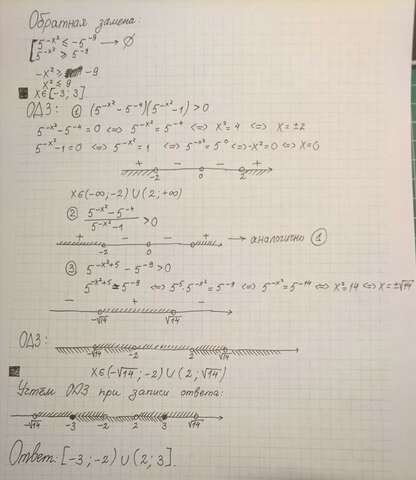 Обратная замена:
[5^{-x²} ≤ -5^{-9} → ∅
5^{-x²} ≥ 5^{-9}
-x² ≥ -9
x² ≤ 9
x∈[-3; 3]
ОДЗ: ① (5^{-x²}-5^{-4})(5^{-x²}-1) > 0
5^{-x²}-5^{-4}=0 <=> 5^{-x²}=5^{-4} <=> x²=4 <=> x=±2
5^{-x²}-1=0 <=> 5^{-x²}=1 <=> 5^{-x²}=5^0 <=> -x²=0 <=> x=0
+ - - +
-2 0 2
x∈(-∞;-2)∪(2;+∞)
② (5^{-x²}-5^{-4})/(5^{-x²}-1) > 0
+ - - +
-2 0 2 → аналогично ①
③ 5^{-x²+5} - 5^{-9} > 0
5^{-x²+5} = 5^{-9} <=> 5^5·5^{-x²}=5^{-9} <=> 5^{-x²}=5^{-14} <=> x²=14 <=> x=±√14
- + -
-√14 √14
ОДЗ:
-√14 -2 2 √14
x∈(-√14;-2)∪(2;√14)
Учтём ОДЗ при записи ответа:
-√14 -3 -2 2 3 √14
Ответ: [-3;-2)∪(2;3].